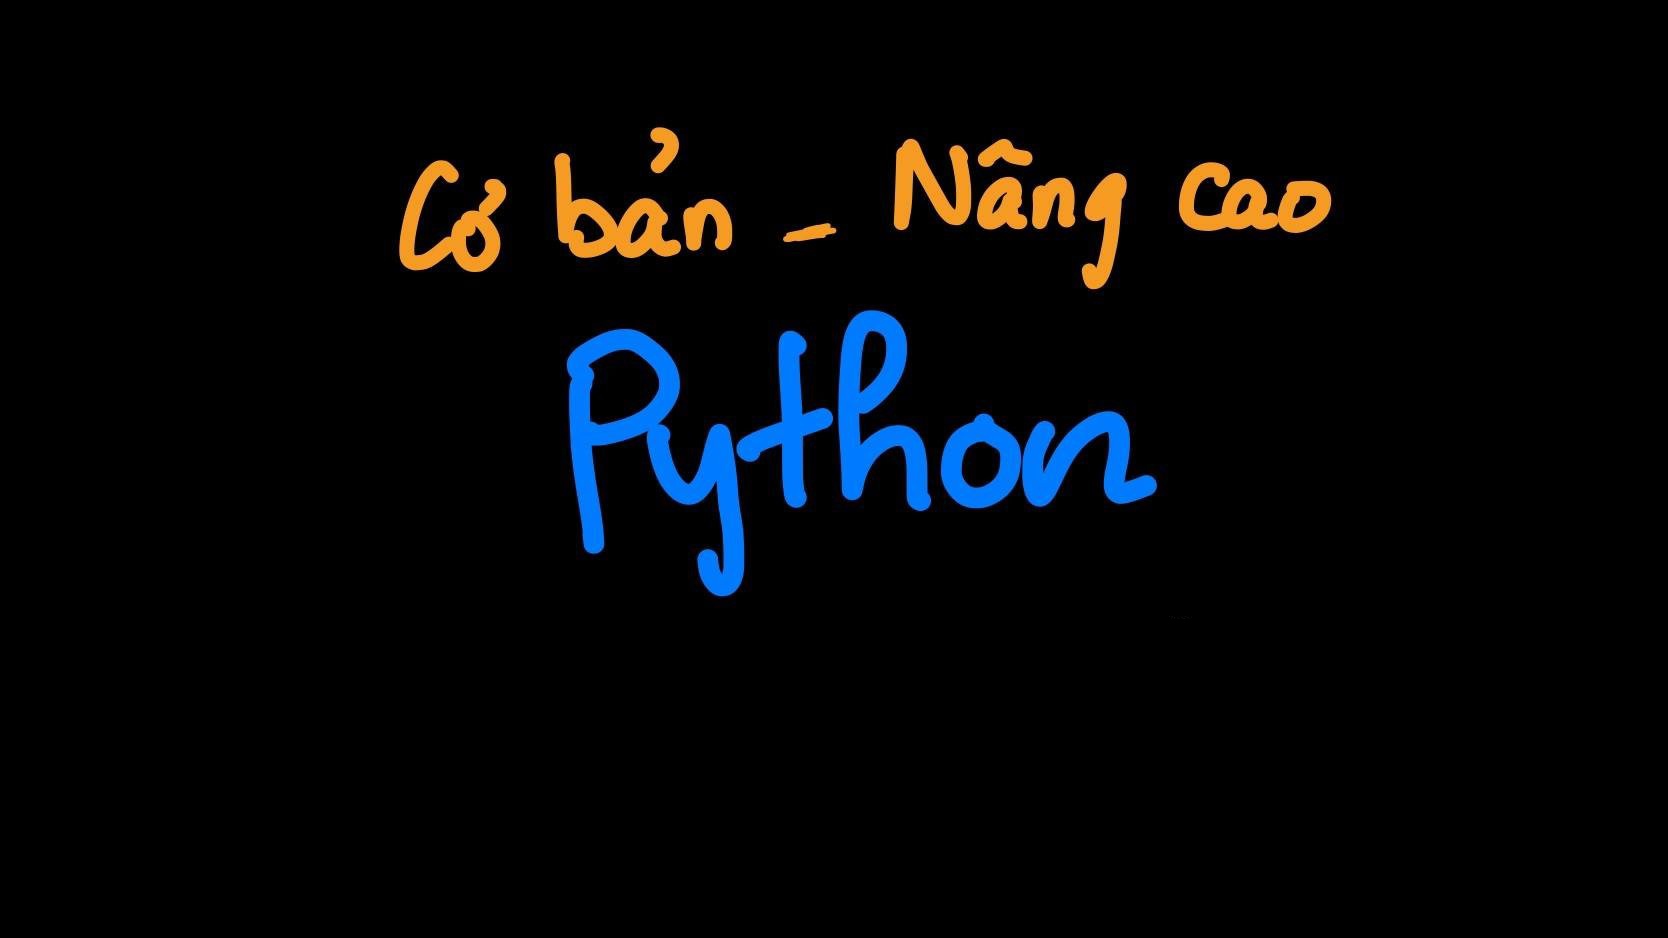 Cơ bản - Nâng cao
Python